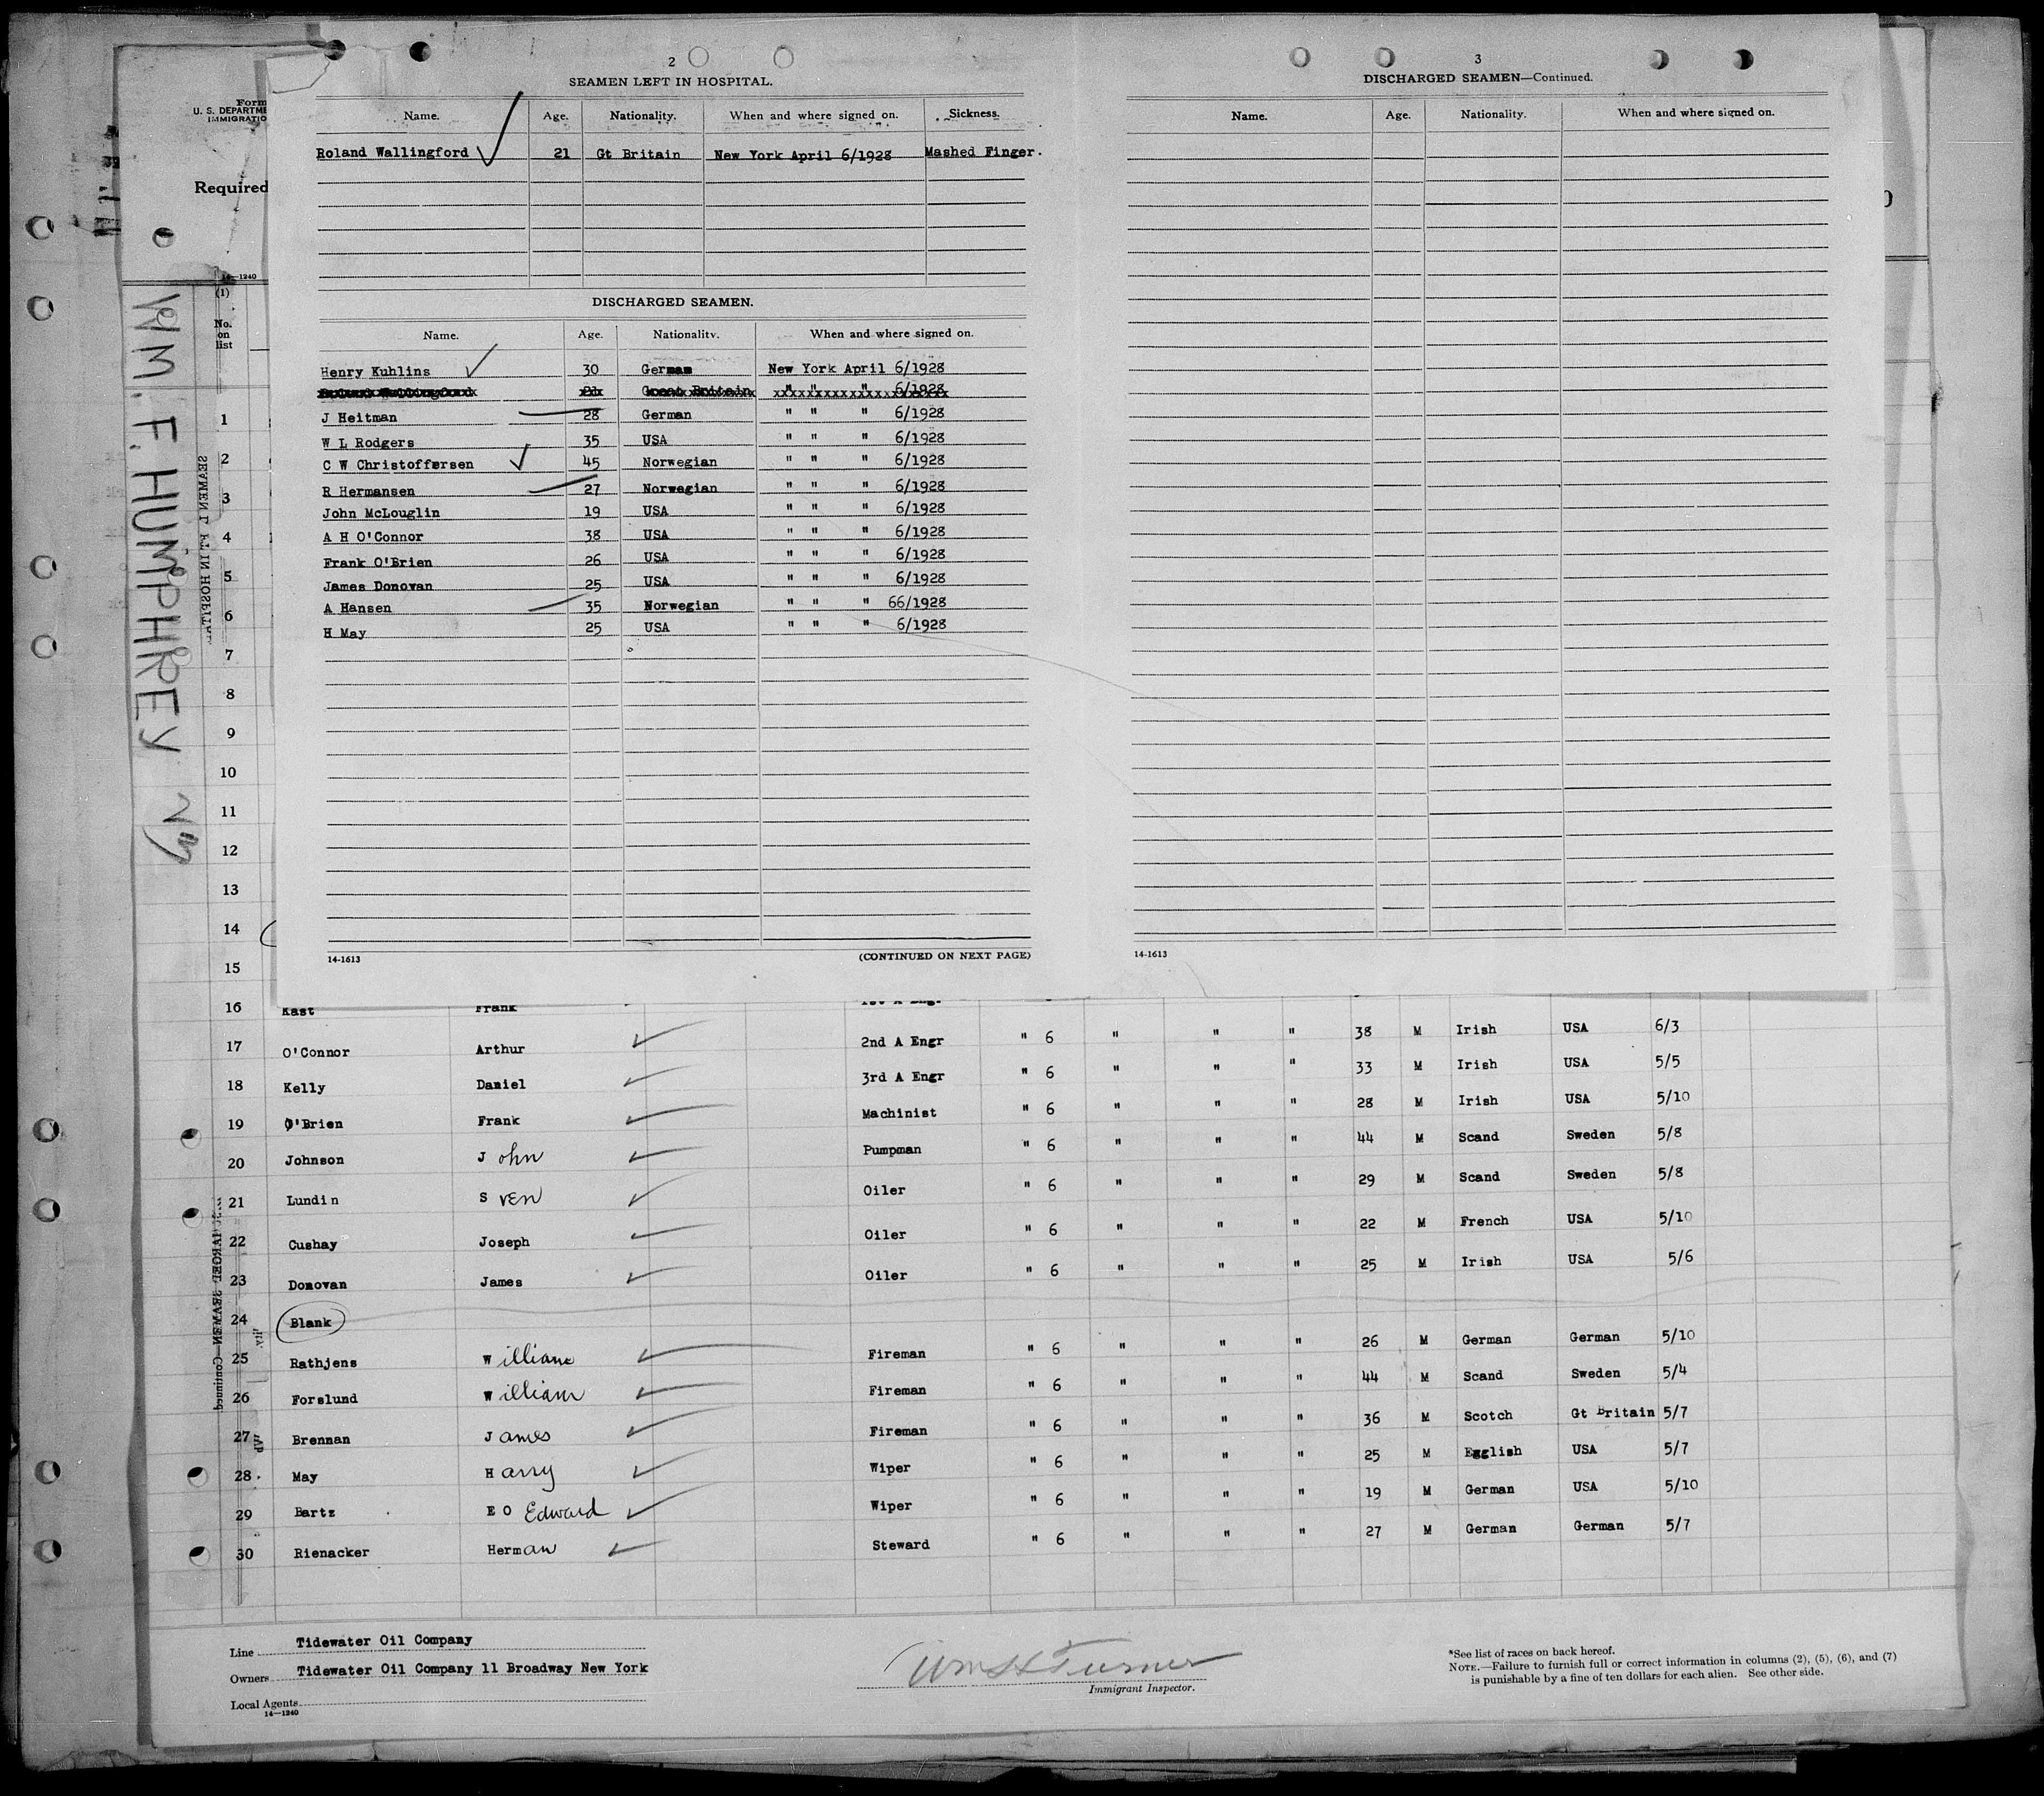 2
SEAMEN LEFT IN HOSPITAL.
Name. Age. Nationality. When and where signed on. Sickness.
Roland Wallingford 21 Gt Britain New York April 6/1928 Mashed Finger.
DISCHARGED SEAMEN.
Name. Age. Nationality. When and where signed on.
Henry Kuhlins 30 German New York April 6/1928
Roland Wallingford 21 Great Britain " " " 6/1928
J Heitman 28 German " " " 6/1928
W L Rodgers 35 USA " " " 6/1928
C W Christoffersen 45 Norwegian " " " 6/1928
R Hermansen 27 Norwegian " " " 6/1928
John McLouglin 19 USA " " " 6/1928
A H O'Connor 38 USA " " " 6/1928
Frank O'Brien 26 USA " " " 6/1928
James Donovan 25 USA " " " 6/1928
A Hansen 35 Norwegian " " " 66/1928
H May 25 USA " " " 6/1928
14-1613 (CONTINUED ON NEXT PAGE)
3
DISCHARGED SEAMEN—Continued.
Name. Age. Nationality. When and where signed on.
14-1613
Form
U. S. DEPARTME
IMMIGRATIO
Required
14—1240
(1)
No.
on
list
WM. F. HUMPHREY
SEAMEN L FT IN HOSPITAL
1
2
3
4
5
6
7
8
9
10
11
12
13
14
15
16 Kast Frank 1st A Engr
17 O'Connor Arthur 2nd A Engr " 6 " " " 38 M Irish USA 6/3
18 Kelly Daniel 3rd A Engr " 6 " " " 33 M Irish USA 5/5
19 O'Brien Frank Machinist " 6 " " " 28 M Irish USA 5/10
20 Johnson John Pumpman " 6 " " " 44 M Scand Sweden 5/8
21 Lundin Sven Oiler " 6 " " " 29 M Scand Sweden 5/8
22 Cushay Joseph Oiler " 6 " " " 22 M French USA 5/10
23 Donovan James Oiler " 6 " " " 25 M Irish USA 5/6
24 Blank
25 Rathjens William Fireman " 6 " " " 26 M German German 5/10
26 Forslund William Fireman " 6 " " " 44 M Scand Sweden 5/4
27 Brennan James Fireman " 6 " " " 36 M Scotch Gt Britain 5/7
28 May Harry Wiper " 6 " " " 25 M Egglish USA 5/7
29 Bartz E O Edward Wiper " 6 " " " 19 M German USA 5/10
30 Rienacker Herman Steward " 6 " " " 27 M German German 5/7
DISCHARGED SEAMEN—Continued
Line Tidewater Oil Company
Owners Tidewater Oil Company 11 Broadway New York
Local Agents
14—1240
Wm H Turner
Immigrant Inspector.
*See list of races on back hereof.
NOTE.—Failure to furnish full or correct information in columns (2), (5), (6), and (7)
is punishable by a fine of ten dollars for each alien. See other side.